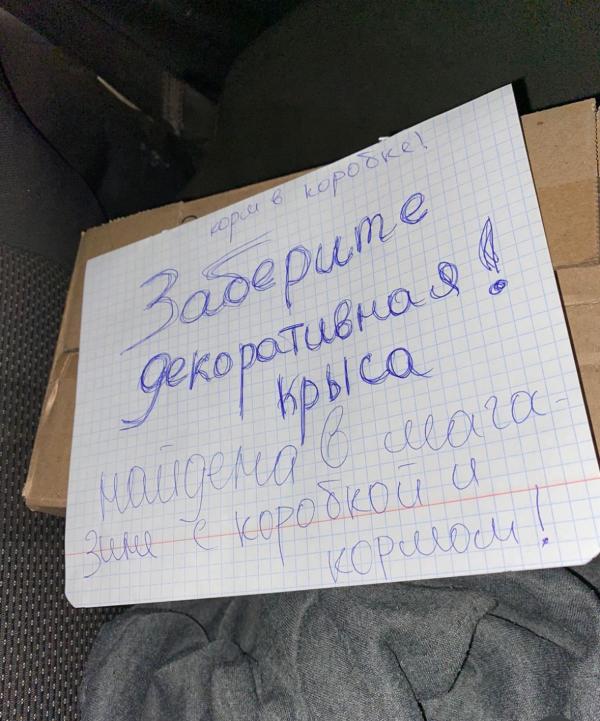 корм в коробке!
Заберите
декоративная!
крыса
найдена в мага-
зине с коробкой и
кормом!